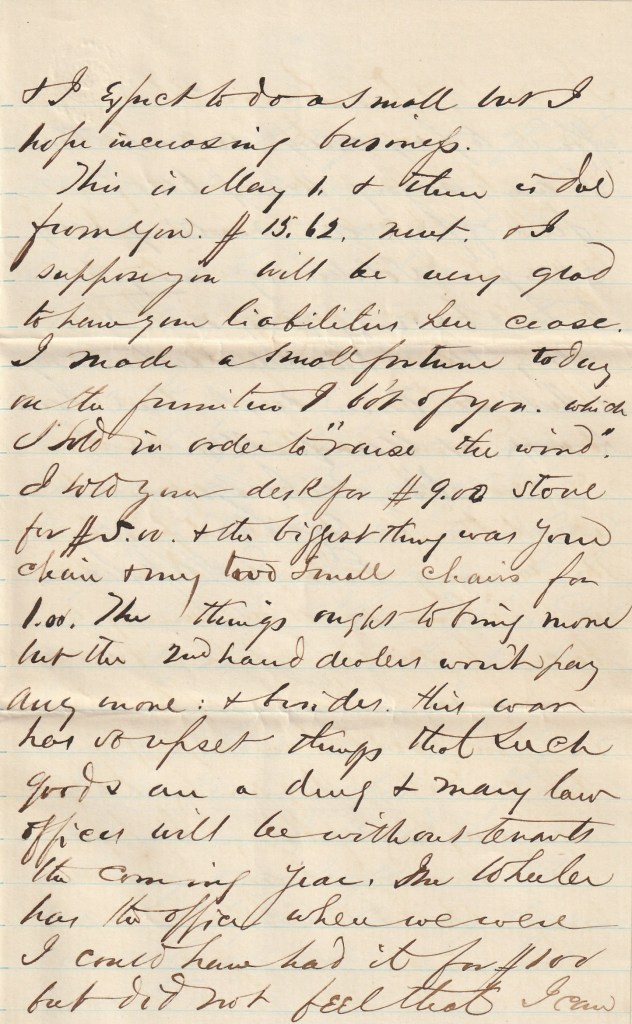 & I Expect to do a small but I
hope increasing business.
This is May 1. & there is due
from you. $15.62. rent. & I
suppose you will be very glad
to have your liabilities here cease.
I made a small fortune today
on the furniture I bo't of you. which
I sold in order to "raise the wind".
I sold your desk for $9.00 stove
for $5.00. & the biggest thing was your
chair & my two small chairs for
1.00. The things ought to bring more
but the 2nd hand dealers won't pay
any more: & besides. this war
has so upset things that such
goods are a drug & many law
offices will be without tenants
the coming year. Mr Wheeler
has the office where we were
I could have had it for $100
but did not feel that I can